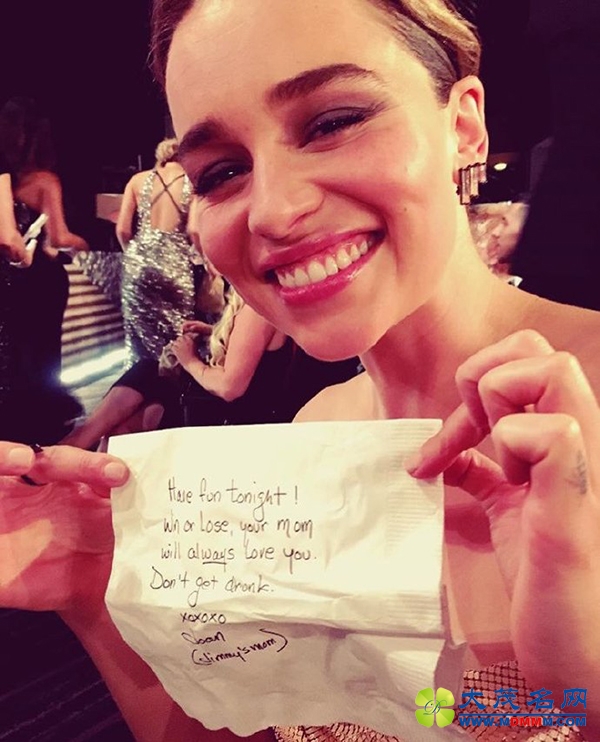 Have fun tonight!
Win or Lose, your mom
will always love you.
Don't get drunk.
xoxoxo
Joan
(Jimmy's mom)
大茂名网
WWW.MOMMM.COM